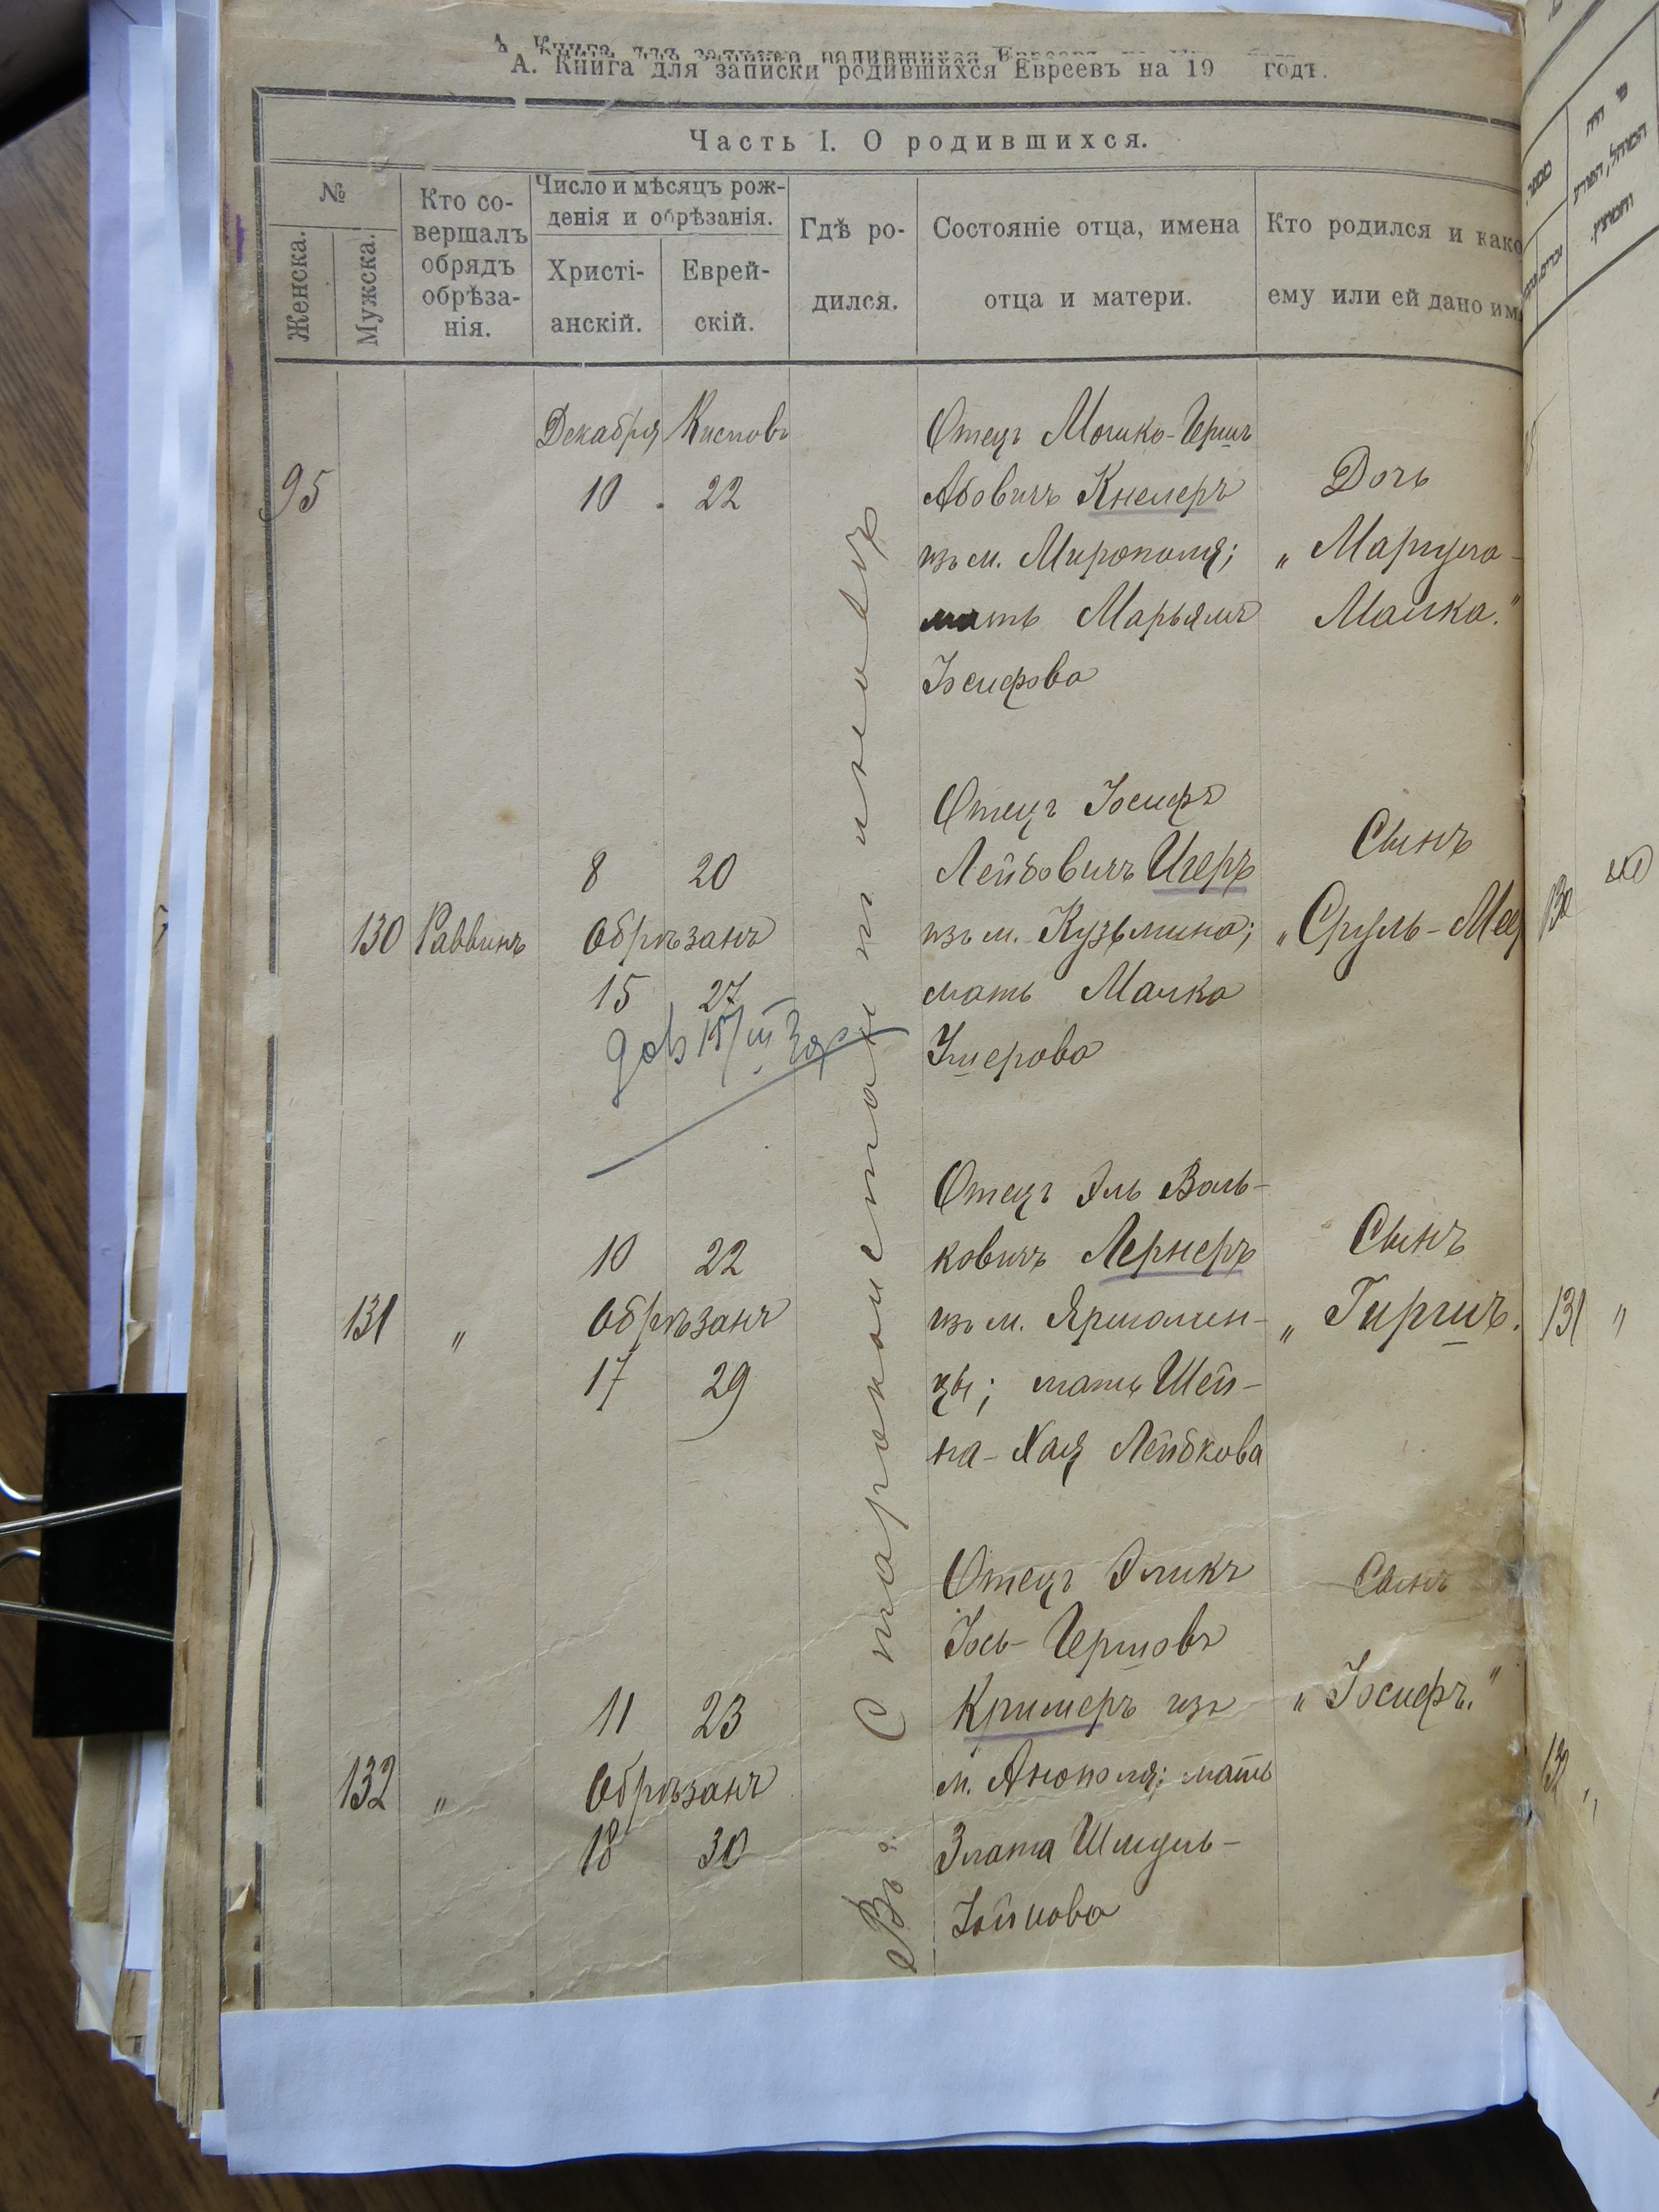 А. Книга для записки родившихся Евреевъ на 19 годъ.
Часть I. О родившихся.
№
Женска.
Мужска.
Кто со-
вершалъ
обрядъ
обрѣза-
нія.
Число и мѣсяцъ рож-
денія и обрѣзанія.
Христі-
анскій.
Еврей-
скій.
Гдѣ ро-
дился.
Состояніе отца, имена
отца и матери.
Кто родился и како
ему или ей дано им
Въ г. Староконстантиновѣ
95
Декабря Кислевъ
10 22
Отецъ Мошко-Гершъ
Абовичъ Кнелеръ
изъ м. Мирополя;
мать Марьямъ
Іосифова
Дочь
„Маргула-
Малка."
130 Раввинъ
8 20
Обрѣзанъ
15 27
Отецъ Іосифъ
Лейбовичъ
изъ м. Кузьмина;
мать Малка
Ушерова
Сынъ
„Сруль-
131 „
10 22
Обрѣзанъ
17 29
Отецъ Эль Воль-
ковичъ Лернеръ
изъ м. Ярмолин-
цы; мать Шей-
на-Хая Лейбкова
Сынъ
„Гиршъ.
132 „
11 23
Обрѣзанъ
18 30
Отецъ Эликъ
Іось-Гершовъ
Кримеръ изъ
м. Анополя; мать
Злата Шмуль-
Сынъ
„Іосифъ."
130
131 „
132 „